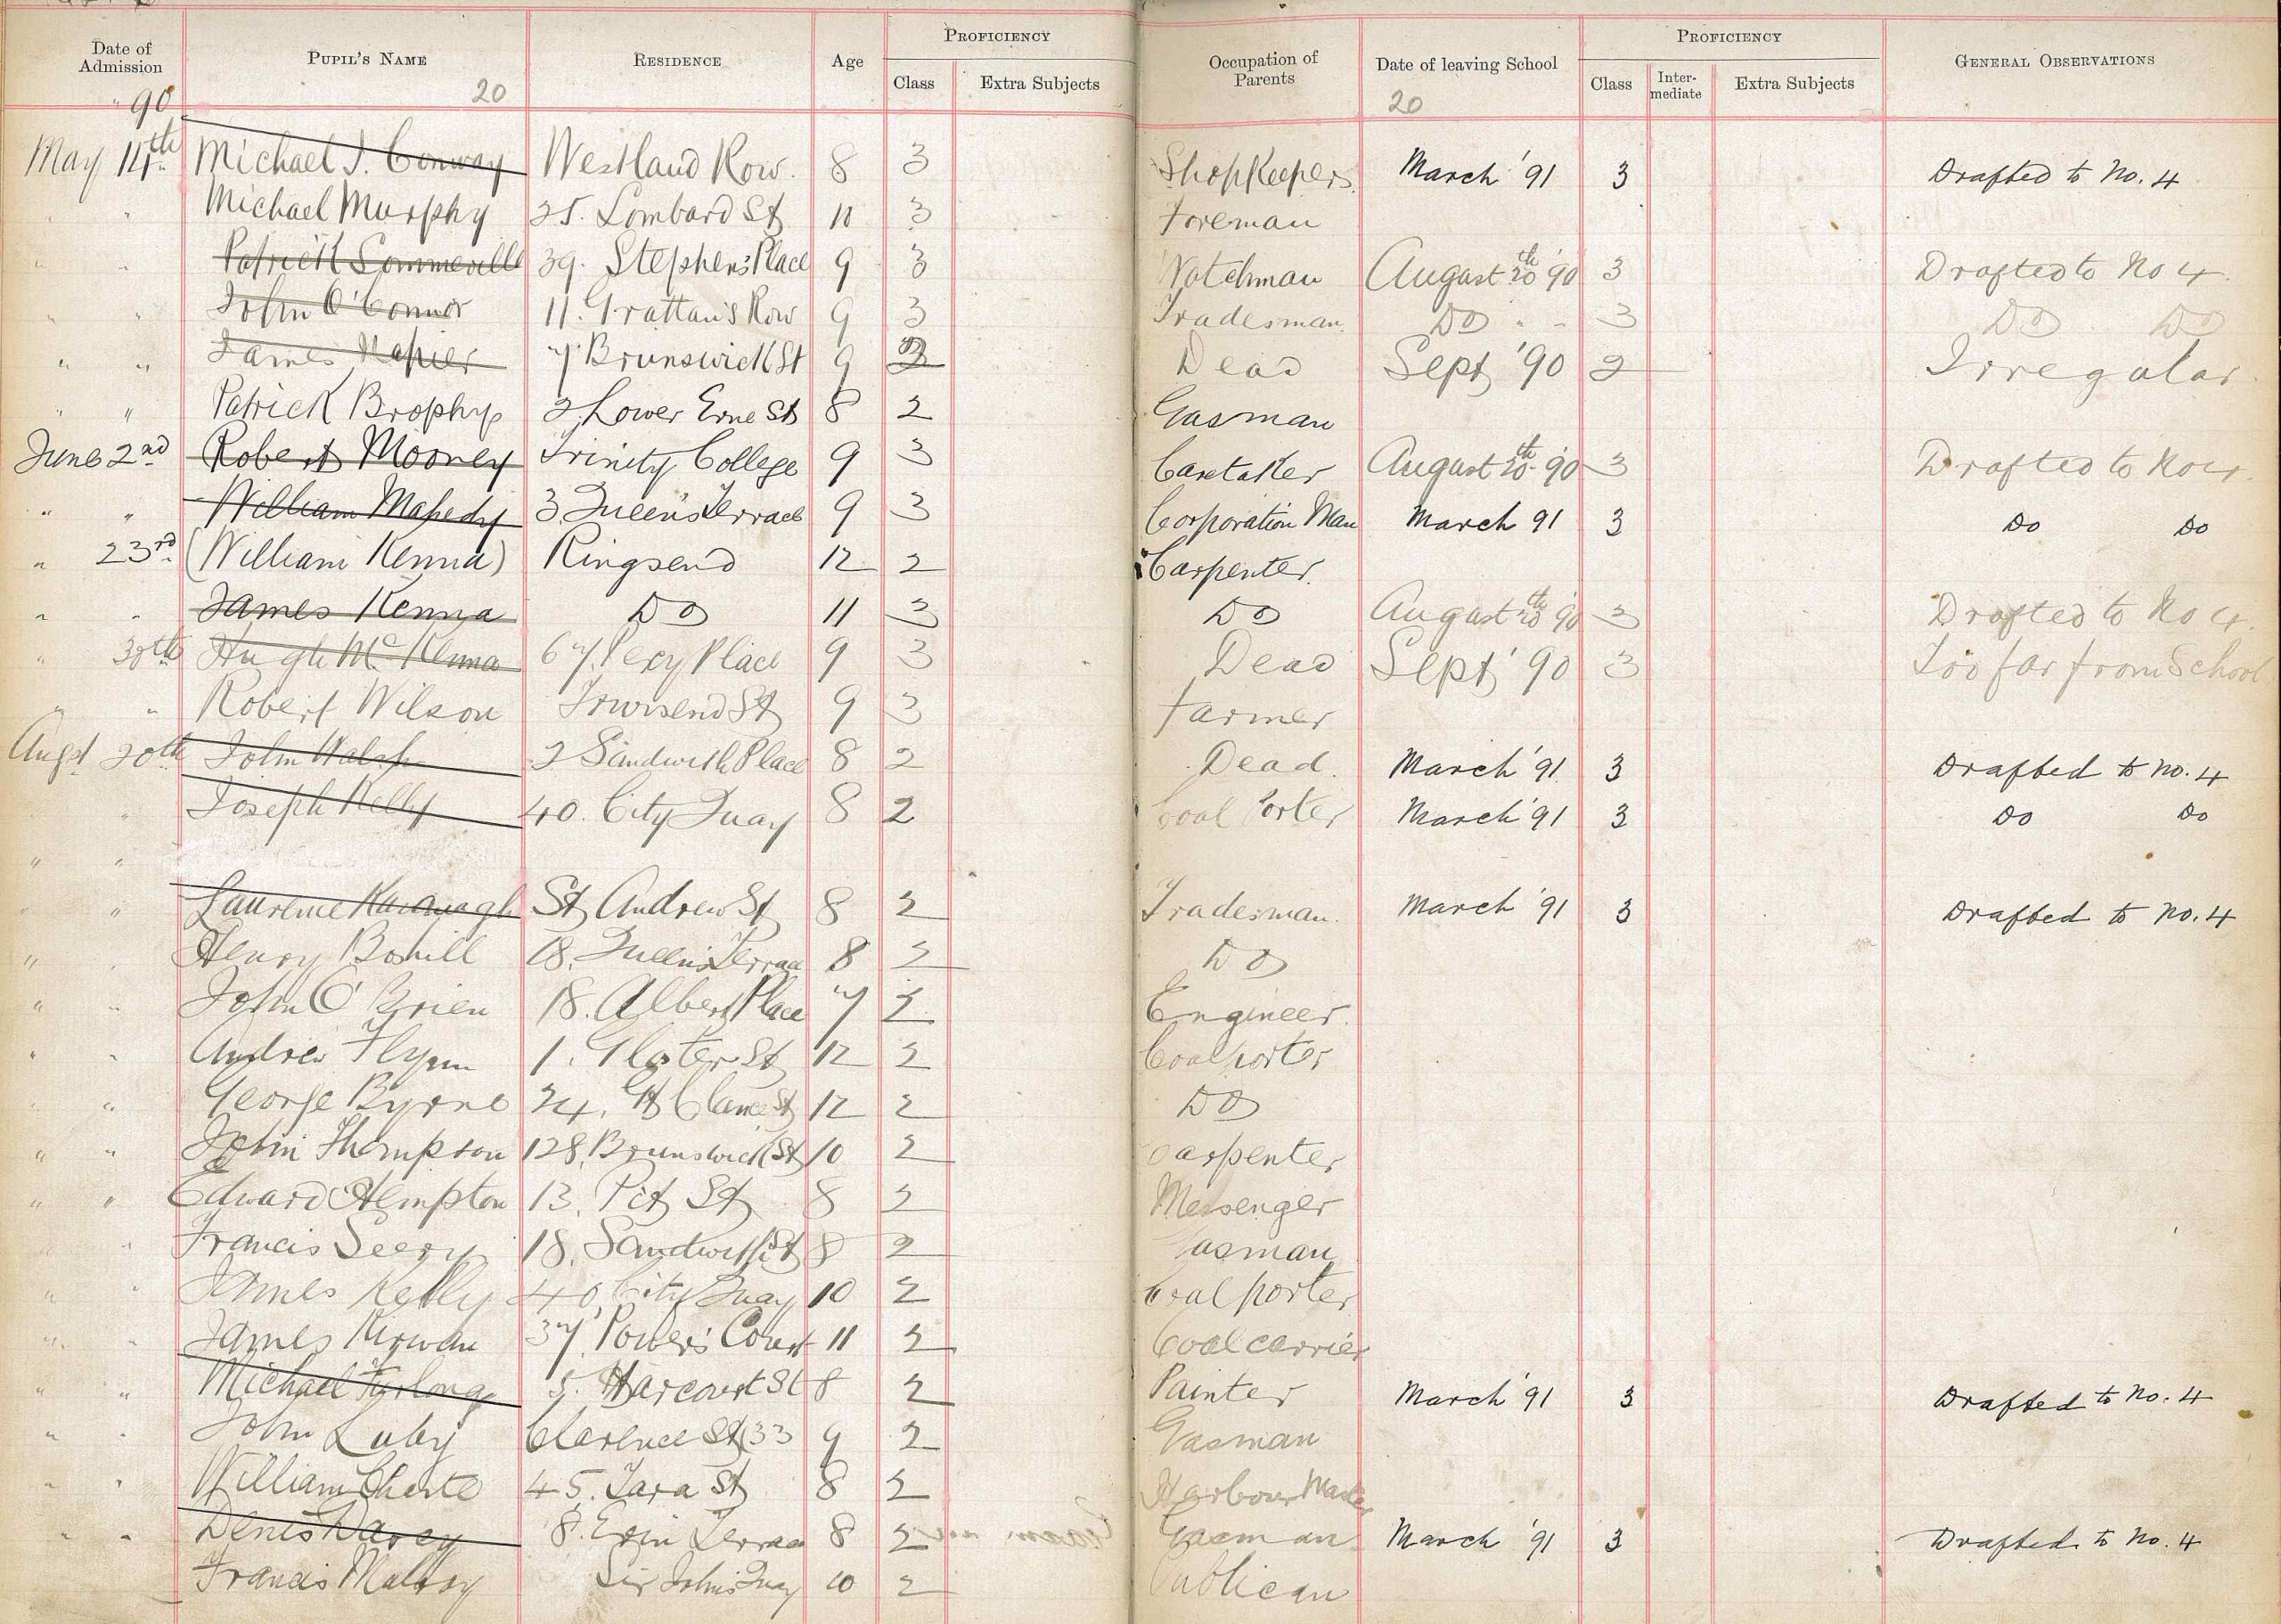 Date of Admission PUPIL'S NAME RESIDENCE Age PROFICIENCY Class Extra Subjects Occupation of Parents Date of leaving School PROFICIENCY Class Inter-mediate Extra Subjects GENERAL OBSERVATIONS
" 90 20 20
May 14th Michael J. Conway Westland Row. 8 3 Shopkeepers March '91 3 Drafted to No. 4
" " Michael Murphy 25. Lombard St 10 3 Foreman
" " Patrick Sommeville 39. Stephen's Place 9 3 Watchman August 20th '90 3 Drafted to No 4.
" " John O'Connor 11. Grattan's Row 9 3 Tradesman. Do " " 3 Do Do
" " James Napier 7 Brunswick St 9 2 Dead Sept '90 2 Irregular.
" " Patrick Brophy 2, Lower Erne St 8 2 Gasman
June 2nd Robert Mooney Trinity College 9 3 Caretaker August 20th '90 3 Drafted to No 4.
" " William Mahedy 3. Queen's Terrace 9 3 Corporation Man March 91 3 Do Do
" 23rd (William Kenna) Ringsend 12 2 Carpenter.
" " James Kenna Do 11 3 Do August 20th '90 3 Drafted to No 4.
" 30th Hugh McKenna 67. Percy Place 9 3 Dead Sept '90 3 Too far from School
" " Robert Wilson Townsend St 9 3 Farmer
Augst 20th John Walsh 2 Sandwith Place 8 2 Dead. March '91 3 Drafted to No. 4
" Joseph Kelly 40. City Quay 8 2 Coal Porter March '91 3 Do Do
" "
" Laurence Kavanagh St Andrew St 8 2 Tradesman. March '91 3 Drafted to No. 4
" Henry Bohill 18. Queen's Terrace 8 2 Do
" " John O'Brien 18. Albert Place 7 2 Engineer.
" " Andrew Flynn 1. Gloster St 12 2 Coalporter
" " George Byrne 24. Gt Clarence St 12 2 Do
" " John Thompson 128, Brunswick St 10 2 Carpenter
" " Edward Hempton 13. Pit St 8 2 Messenger
" Francis Seery 18. Sandwith St 8 2 Gasman
" " James Kelly 40, City Quay 10 2 Coal porter
" " James Kirwan 37. Power's Court 11 2 Coal carrier
" " Michael Furlong 5. Harcourt St 8 2 Painter March '91 3 Drafted to No. 4
" " John Luby Clarence St 33 9 2 Gasman
" " William 45. Tara St 8 2 Harbour Master
" " Denis Darcy 8. Erin Terrace 8 2 Gasman March '91 3 Drafted to No. 4
Francis Malloy Sir John's Quay 10 2 Publican